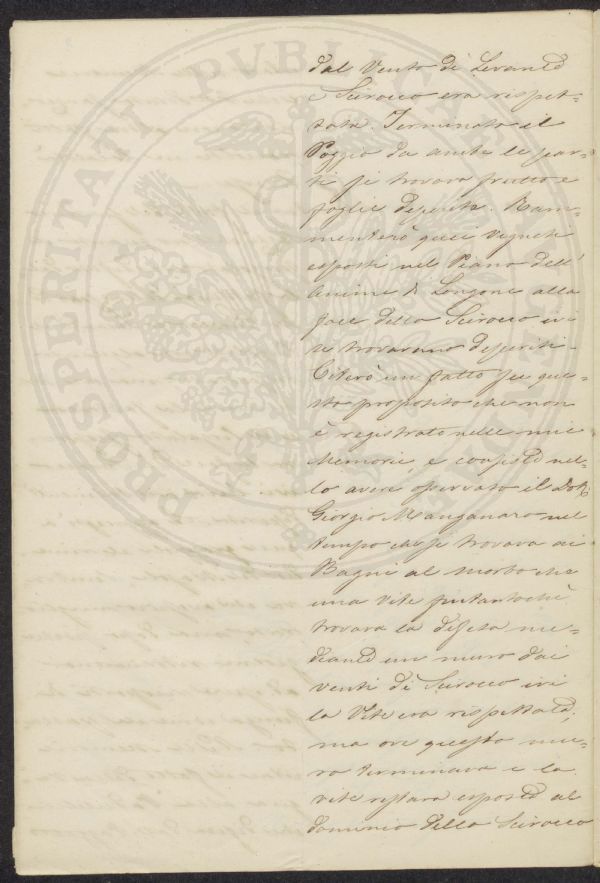 dal Vento di Levante
e Scirocco era rispet=
tata. Terminato il
Poggio da ambe le par=
ti si trovava frutto e
foglie deperite. Ram=
menterò quei vigneti
esposti nel Piano dell'
Anime di Longone alla
face dello Scirocco ivi
si trovarono deperiti.
Citerò un fatto su que=
sto proposito che non
è registrato nelle mie
Memorie, e consiste nel=
lo avere osservato il Dott.
Giorgio Manganaro nel
tempo che si trovava ai
Bagni al Morbo che
una Vite fintantochè
trovava la difesa me=
diante un muro dai
venti di Scirocco ivi
la Vite era rispettata;
ma ove questo mu=
ro terminava e la
vite restava esposta al
dominio dello Scirocco
PROSPERITATI PUBLICAE